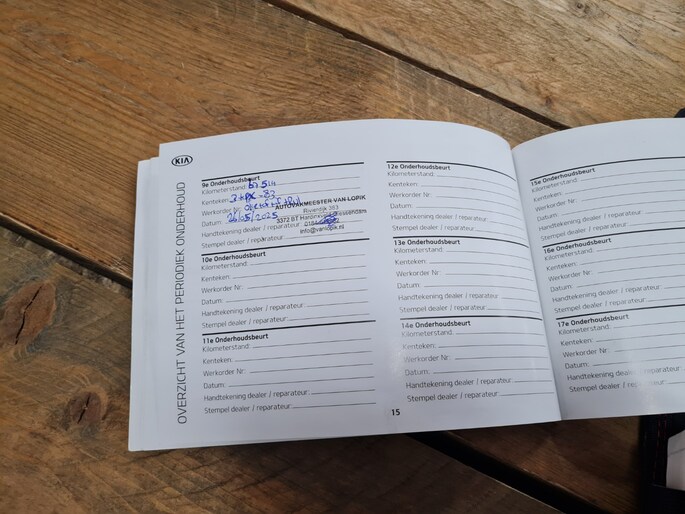 KIA
OVERZICHT VAN HET PERIODIEK ONDERHOUD
9e Onderhoudsbeurt
Kilometerstand:
Kenteken:
Werkorder Nr:
Datum: 26/05/2025
Handtekening dealer / reparateur:
Stempel dealer / reparateur:
AUTOVAKMEESTER VAN LOPIK
Rivierdijk 363
3372 BT Hardinxveld-Giessendam
info@vanlopik.nl
10e Onderhoudsbeurt
Kilometerstand:
Kenteken:
Werkorder Nr:
Datum:
Handtekening dealer / reparateur:
Stempel dealer / reparateur:
11e Onderhoudsbeurt
Kilometerstand:
Kenteken:
Werkorder Nr:
Datum:
Handtekening dealer / reparateur:
Stempel dealer / reparateur:
12e Onderhoudsbeurt
Kilometerstand:
Kenteken:
Werkorder Nr:
Datum:
Handtekening dealer / reparateur:
Stempel dealer / reparateur:
13e Onderhoudsbeurt
Kilometerstand:
Kenteken:
Werkorder Nr:
Datum:
Handtekening dealer / reparateur:
Stempel dealer / reparateur:
14e Onderhoudsbeurt
Kilometerstand:
Kenteken:
Werkorder Nr:
Datum:
Handtekening dealer / reparateur:
Stempel dealer / reparateur:
15
15e Onderhoudsbeurt
Kilometerstand:
Kenteken:
Werkorder Nr:
Datum:
Handtekening dealer / reparateur:
Stempel dealer / reparateur:
16e Onderhoudsbeurt
Kilometerstand:
Kenteken:
Werkorder Nr:
Datum:
Handtekening dealer / reparateur:
Stempel dealer / reparateur:
17e Onderhoudsbeurt
Kilometerstand:
Kenteken:
Werkorder Nr:
Datum:
Handtekening dealer / reparateur:
Stempel dealer / reparateur: